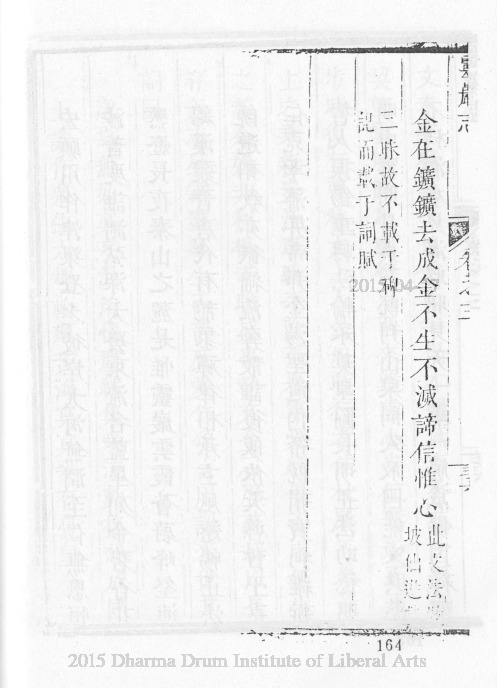 靈巖志
卷之三
金在鑛鑛去成金不生不滅諦信惟心此文法
坡仙遊
三昧故不載于碑
記而載于詞賦
2015-04-17
164
2015 Dharma Drum Institute of Liberal Arts